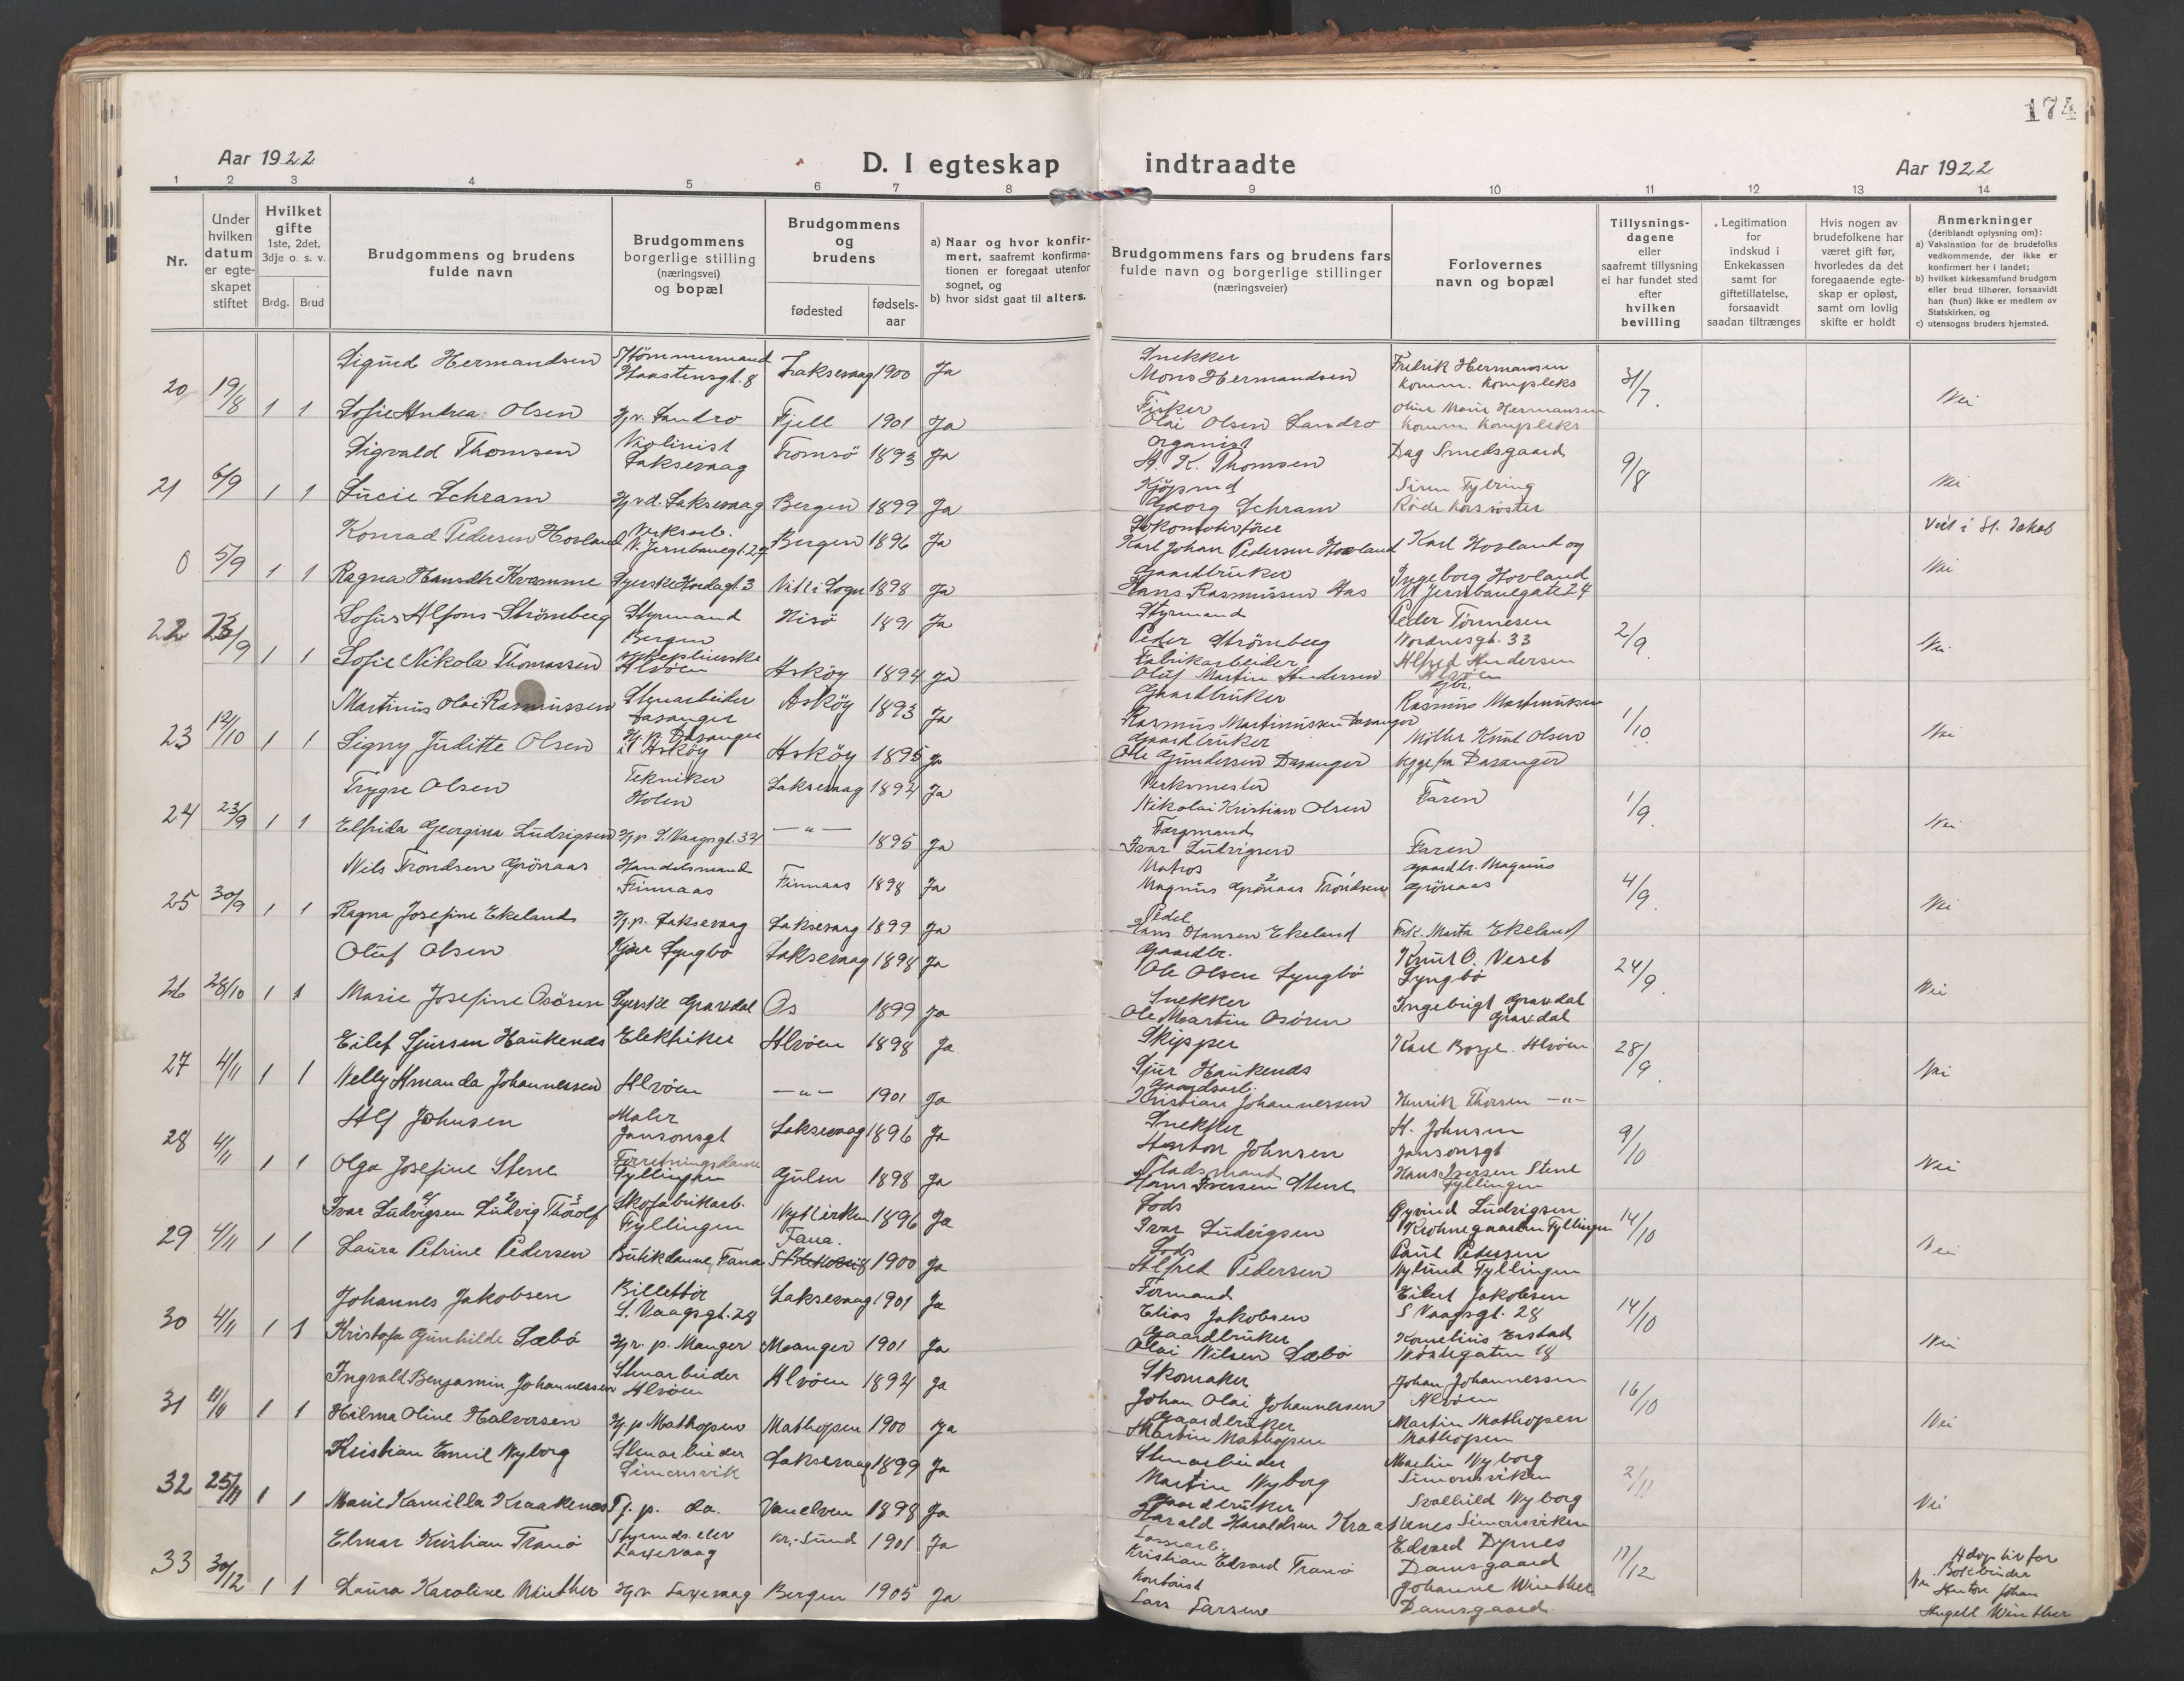 174
Aar 1922
D. I egteskap indtraadte
Aar 1922
1 2 3 4 5 6 7 8 9 10 11 12 13 14
Nr.
Under hvilken datum er egte-skapet stiftet
Hvilket gifte 1ste, 2det, 3dje o. s. v.
Brdg. Brud
Brudgommens og brudens fulde navn
Brudgommens borgerlige stilling (næringsvei) og bopæl
Brudgommens og brudens
fødested
fødsels-aar
a) Naar og hvor konfir-mert, saafremt konfirma-tionen er foregaat utenfor sognet, og
b) hvor sidst gaat til alters.
Brudgommens fars og brudens fars fulde navn og borgerlige stillinger (næringsveier)
Forlovernes navn og bopæl
Tillysnings-dagene eller saafremt tillysning ei har fundet sted efter hvilken bevilling
Legitimation for indskud i Enkekassen samt for giftetillatelse, forsaavidt saadan tiltrænges
Hvis nogen av brudefolkene har været gift før, hvorledes da det foregaaende egte-skap er opløst, samt om lovlig skifte er holdt
Anmerkninger (deriblandt oplysning om):
a) Vaksination for de brudefolks vedkommende, der ikke er konfirmert her i landet;
b) hvilket kirkesamfund brudgom eller brud tilhører, forsaavidt han (hun) ikke er medlem av Statskirken, og
c) utensogns bruders hjemsted.
20 19/8 1 1
Sigurd Hermandsen Laksevaag 1900 Ja
Snekker Mons Hermandsen
Fredrik Hermansen komm. kompleks
31/7
Sofie Andrea Olsen Hj. v. Landro Fjell 1901 Ja
Fisker Olai Olsen Landro
Oline Marie Hermansen komm. kompleks
Nei
21 6/9 1 1
Sigvald Thomsen Violinist Laksevaag Tromsö 1893 Ja
Organist A. K. Thomsen
Dag Smedsgaard
9/8
Lucie Schram Hj. v. d. Laksevaag Bergen 1899 Ja
Kjøpmd Georg Schram
Røde kors søster
Nei
0 5/9 1 1
Konrad Pedersen Hovland Verksarb. N. Jernbanegt. 24 Bergen 1896 Ja
Lokomotivfører Karl Johan Pedersen Hovland
Karl Hovland og
Viet i St. Jakob
Ragna Hansdtr Kvamme Syerske 1898 Ja
Gaardbruker Hans Rasmussen Aas
Ingeborg Hovland N Jernbanegate 24
Nei
22 23/9 1 1
Sofus Alfons Strömberg Styrmand Bergen Hisö 1891 Ja
Styrmand Peder Strömberg
Peder Tönnesen Nordnesgt. 33
2/9
Sofie Nikola Thomassen sykepleierske Alvöen Asköy 1894 Ja
Fabrikarbeider Oluf Martin Andersen
Alfred Andersen Alvöen
Nei
23 12/10 1 1
Martinus Olai Rasmussen Stenarbeider Asköy 1893 Ja
Gaardbruker Rasmus Martinussen
Gbr. Rasmus Martinussen
1/10
Signy Juditte Olsen i Asköy Asköy 1895 Ja
Gaardbruker Ole Gundersen Davanger
Möller Knut Olsen
Nei
24 23/9 1 1
Trygve Olsen Tekniker Holen Laksevaag 1892 Ja
Verksmester Nikolai Kristian Olsen
Faren
1/9
Elfrida Georgina Ludvigsen Hj. p. S. Vaagsgt. 32 — „ — 1895 Ja
Færgmand Ivar Ludvigsen
Faren
Nei
25 30/9 1 1
Nils Trondsen Grönaas Handelsmand Finnaas Finnaas 1898 Ja
Matros Magnus Grönaas Trondsen
gaardbr. Magnus Grönaas
4/9
Ragna Josefine Ekeland Hj. p. Laksevaag Laksevaag 1899 Ja
Pedel Hans Hansen Ekeland
Frk. Marta Ekeland
Nei
26 28/10 1 1
Oluf Olsen Lyngbö Laksevaag 1898 Ja
Gaardbr. Ole Olsen Lyngbö
Knut O. Veset Lyngbö
24/9
Marie Josefine Osören Syerske Gravdal Os 1899 Ja
Snekker Ole Martin Osören
Ingebrigt Gravdal Gravdal
Nei
27 4/11 1 1
Eilef Sjursen Haukenæs Elektriker Alvöen 1898 Ja
Skipper Sjur Haukenæs
Karl Alvöen
28/9
Nelly Amanda Johannessen Alvöen — „ — 1901 Ja
Kristian Johannessen
Henrik Thorsen — „ —
Nei
28 4/11 1 1
Alf Johnsen Maler Jansonsgt Laksevaag 1896 Ja
Snekker Anton Johnsen
A. Johnsen Jansonsgt
9/10
Olga Josefine Stene Forretningsdame Fyllingen Gulen 1898 Ja
Pladsmand Hans Iversen Stene
Hans Iversen Stene Fyllingen
Nei
29 4/11 1 1
Ivar Ludvigsen Ludvig Thorolf Skofabrikarb. Fyllingen Nykirken 1896 Ja
Lods Ivar Ludvigsen
Øyvind Ludvigsen Krohnegaarden Fyllingen
14/10
Laura Petrine Pedersen Butikdame, Fana Fana. 1900 Ja
Lods Alfred Pedersen
Paul Pedersen Nylund Fyllingen
Nei
30 4/11 1 1
Johannes Jakobsen Billettör S. Vaagsgt. 28 Laksevaag 1901 Ja
Formand Elias Jakobsen
Eilert Jakobsen S Vaagsgt. 28
14/10
Kristofa Gunhilde Sæbö Hj. v. p. Manger Manger 1901 Ja
Gaardbruker Olai Nilsen Sæbö
Kornelius Erstad 18
Nei
31 4/11 1 1
Ingvald Benjamin Johannessen Stenarbeider Alvöen Alvöen 1892 Ja
Skomaker Johan Olai Johannessen
Johan Johannessen Alvöen
16/10
Hilma Oline Halvorsen Hj. p Mathopen Mathopen 1900 Ja
Gaardbruker Martin Mathopen
Martin Mathopen Mathopen
Nei
32 25/11 1 1
Kristian Emil Nyborg Stenarbeider Simonsvik Laksevaag 1899 Ja
Stenarbeider Martin Nyborg
Martin Nyborg Simonsviken
2/11
Marie Kamilla Kraakenes Tj. p. do. Vanelven 1898 Ja
Gaardbruker Harald Haraldsen Kraakenes
Svalhild Nyborg Simonsviken
Nei
33 30/12 1 1
Elmar Kristian Tranö Styrmds. elev Laxevaag Kr. Sund 1901 Ja
Kristian Edvard Tranö
Edvard Dyrnes Damsgaard
17/12
Laura Karoline Winther Hj. v. Laxevaag Bergen 1905 Ja
Lars Larsen
Johanne Winther Damsgaard
Nei
Adoptiv for Bokbinder Anton Johan Angell Winther